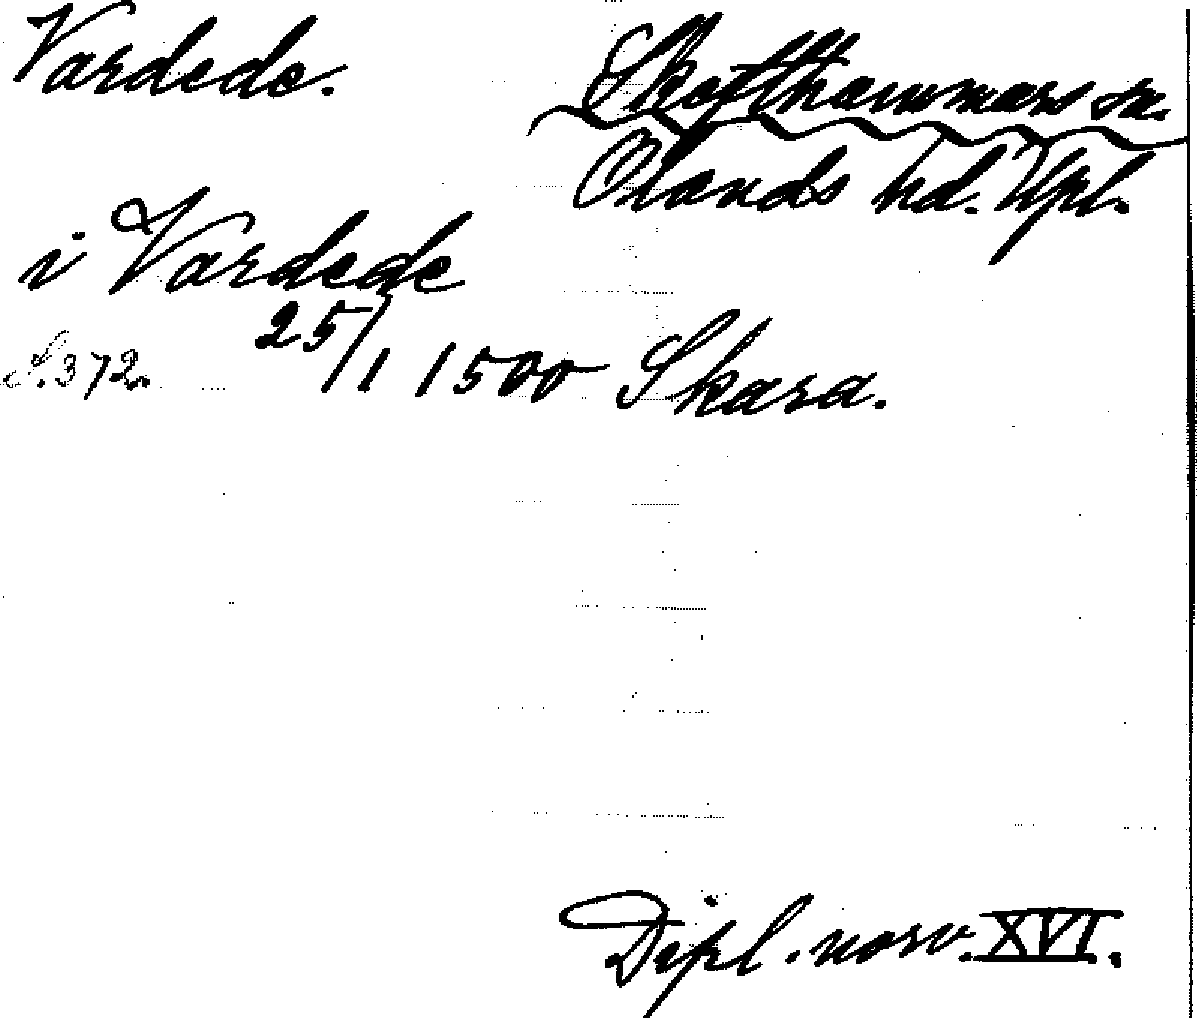 Vardede.
Skefthammars sn.
Olands hd. Upl.
i Vardede
S. 372. 25/1 1500 Skara.
Dipl. norv. XVI.